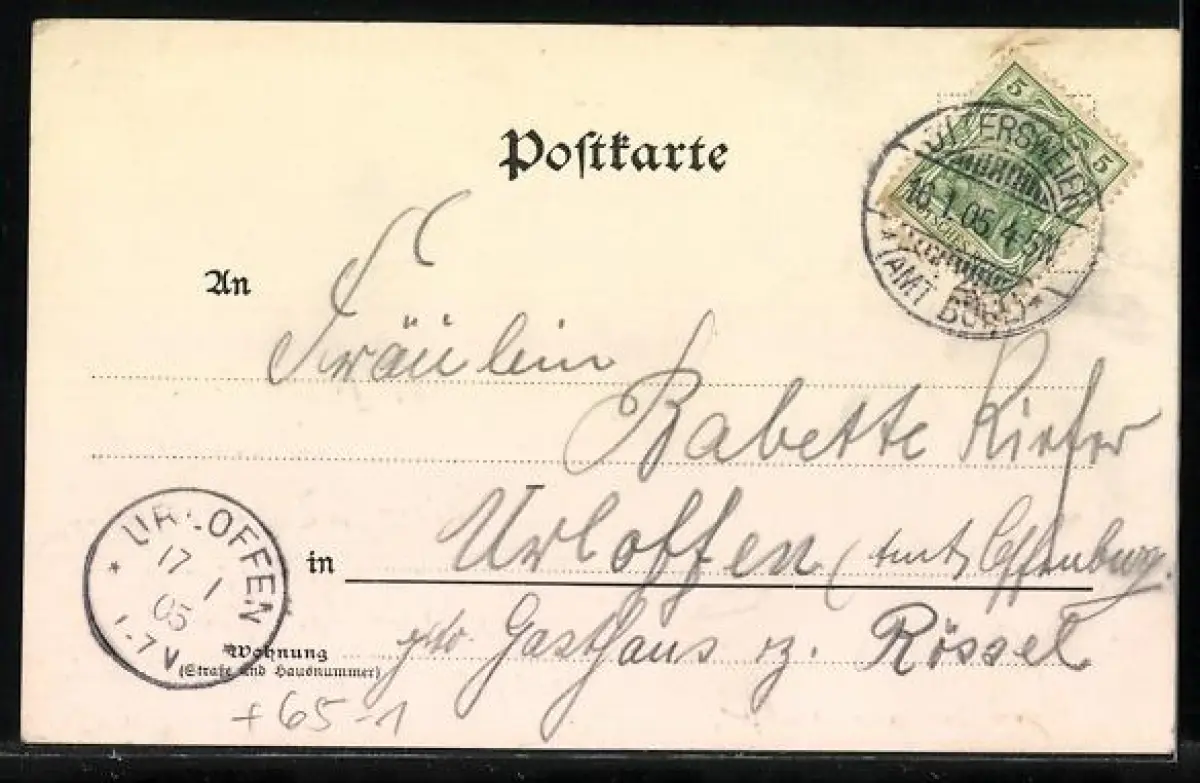 Postkarte
5 5
OTTERSWEIER
16.1.05 4-5N
* (AMT BÜHL) *
An
Fräulein
Babette Kiefer
in Urloffen (Amt Offenburg.
Gasthaus z. Rössel
Wohnung
(Straße und Hausnummer)
* URLOFFEN
17 1
05
1-7V
+65-1